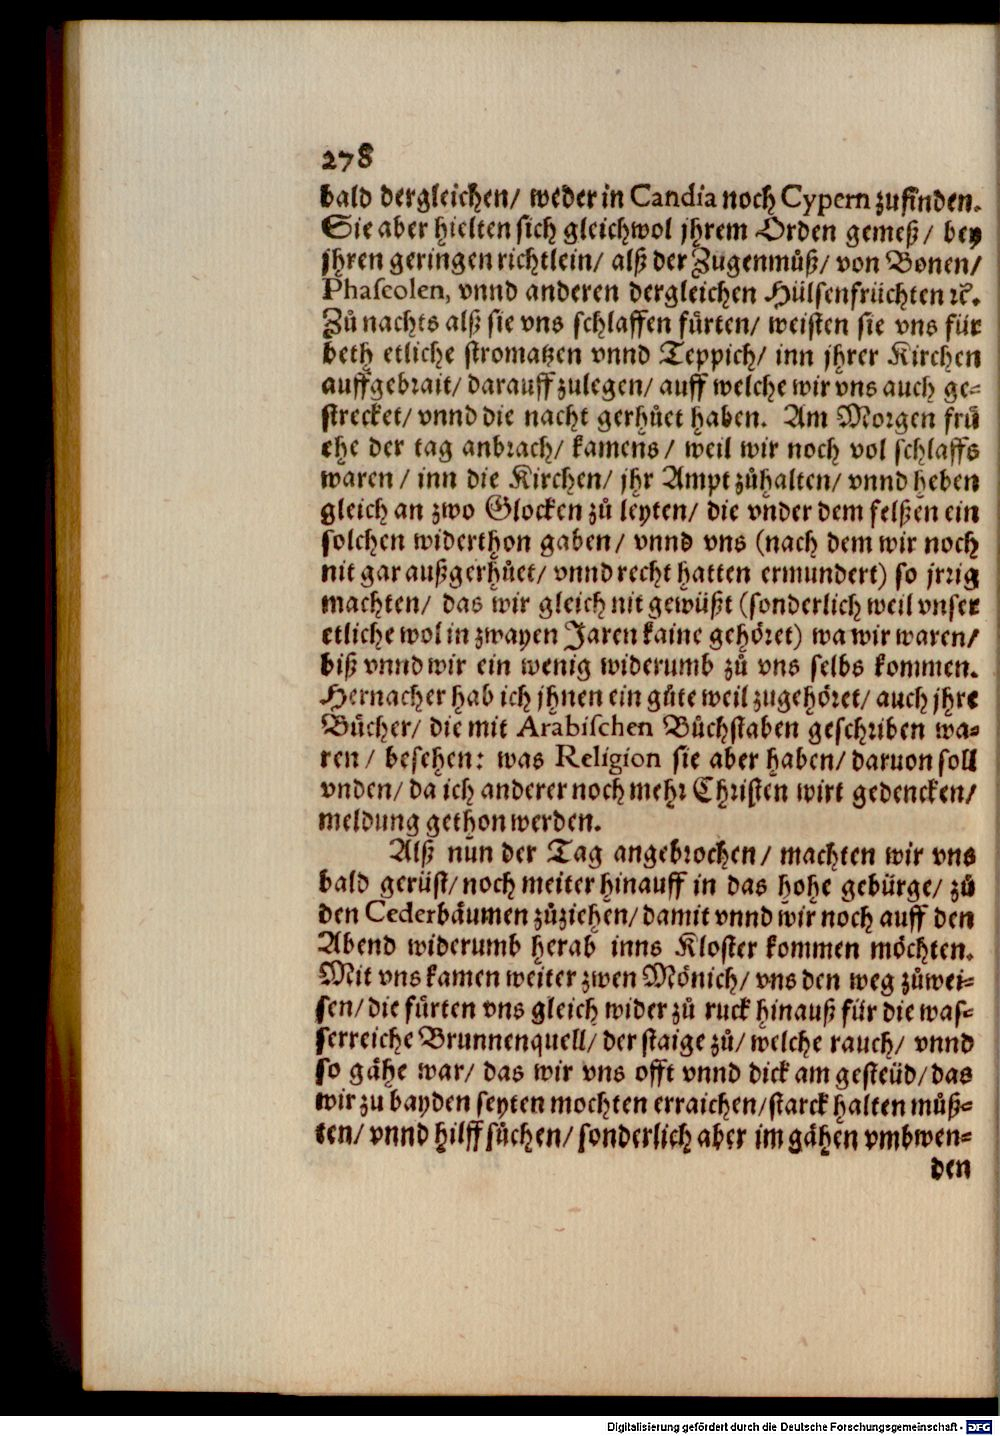 278
bald dergleichen/ weder in Candia noch Cypern zufinden.
Sie aber hielten sich gleichwol jhrem Orden gemeß/ bey
jhren geringen richtlein/ alß der Zugenmůß/ von Bonen/
Phaseolen, vnnd anderen dergleichen Hülsenfrüchten ꝛc̃.
Zů nachts alß sie vns schlaffen fürten/ weisten sie vns für
beth etliche stromatzen vnnd Teppich/ inn jhrer Kirchen
auffgebrait/ darauff zulegen/ auff welche wir vns auch ge-
strecket/ vnnd die nacht gerhůet haben. Am Morgen frü
ehe der tag anbrach/ kamens/ weil wir noch vol schlaffs
waren/ inn die Kirchen/ jhr Ampt zůhalten/ vnnd heben
gleich an zwo Glocken zů leyten/ die vnder dem felßen ein
solchen widerthon gaben/ vnnd vns (nach dem wir noch
nit gar außgerhůet/ vnnd recht hatten ermundert) so jrrig
machten/ das wir gleich nit gewüßt (sonderlich weil vnser
etliche wol in zwayen Jaren kaine gehöret) wa wir waren/
biß vnnd wir ein wenig widerumb zů vns selbs kommen.
Hernacher hab ich jhnen ein gůte weil zugehöret/ auch jhre
Bücher/ die mit Arabischen Bůchstaben geschriben wa-
ren/ besehen: was Religion sie aber haben/ daruon soll
vnden/ da ich anderer noch mehr Christen wirt gedencken/
meldung gethon werden.
Alß nun der Tag angebrochen/ machten wir vns
bald gerüst/ noch weiter hinauff in das hohe gebürge/ zů
den Cederbäumen zůziehen/ damit vnnd wir noch auff den
Abend widerumb herab inns Kloster kommen möchten.
Mit vns kamen weiter zwen Mönich/ vns den weg zůwei-
sen/ die fürten vns gleich wider zů ruck hinauß für die was-
serreiche Brunnenquell/ der staige zů/ welche rauch/ vnnd
so gähe war/ das wir vns offt vnnd dick am gesteüd/ das
wir zu bayden seyten mochten erraichen/ starck halten můß-
ten/ vnnd hilff sůchen/ sonderlich aber im gähen vmbwen-
den
Digitalisierung gefördert durch die Deutsche Forschungsgemeinschaft - DFG